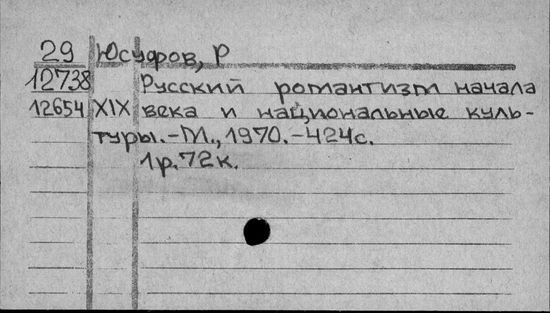 29 Юсуфов, Р
12738 Русский романтизм начала
12654 XIX века и национальные куль-
туры.-М., 1970.-424с.
1р.72к.